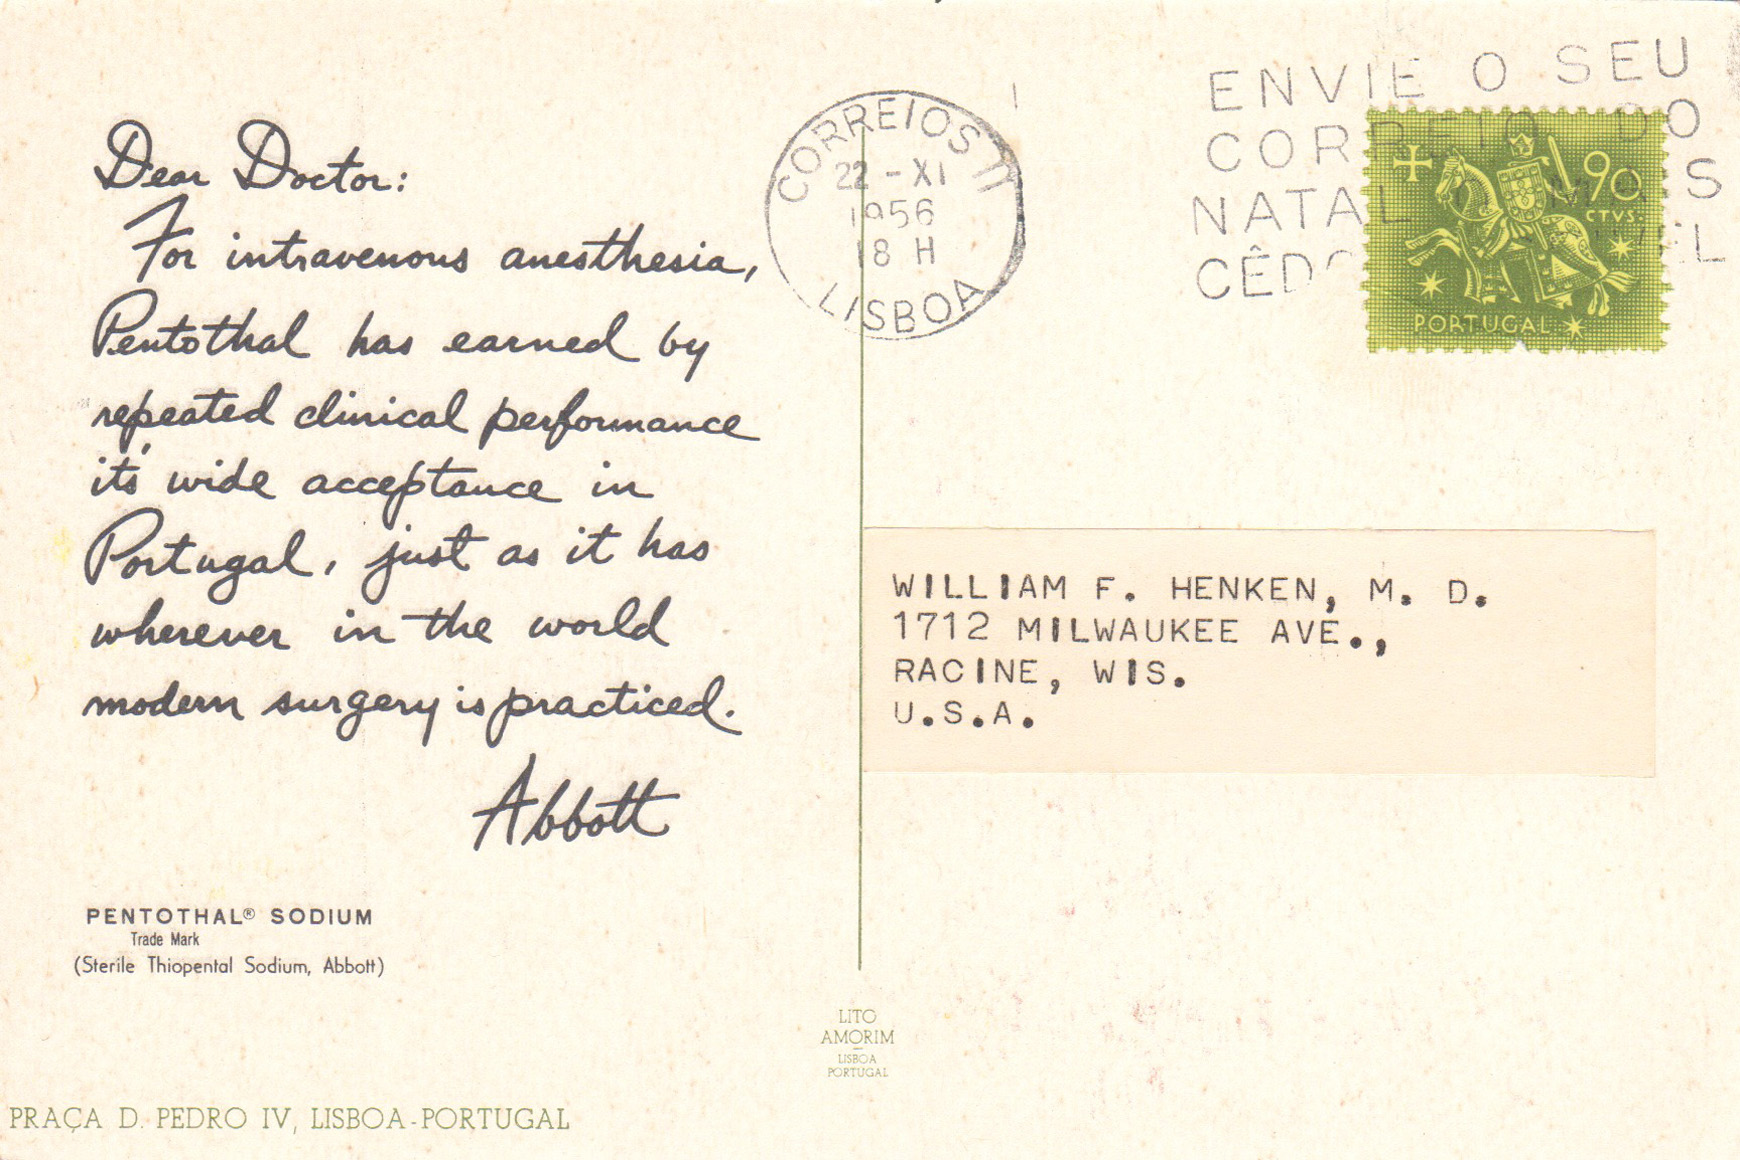 Dear Doctor:
For intravenous anesthesia,
Pentothal has earned by
repeated clinical performance
it's wide acceptance in
Portugal, just as it has
wherever in the world
modern surgery is practiced.
Abbott
PENTOTHAL® SODIUM
Trade Mark
(Sterile Thiopental Sodium, Abbott)
PRAÇA D. PEDRO IV, LISBOA-PORTUGAL
LITO
AMORIM
LISBOA
PORTUGAL
CORREIOS
22-XI
1956
18 H
LISBOA
ENVIE O SEU
CORREIO DO
NATAL O MAIS
CÊDO
90
CTVS.
PORTUGAL
WILLIAM F. HENKEN, M. D.
1712 MILWAUKEE AVE.,
RACINE, WIS.
U.S.A.